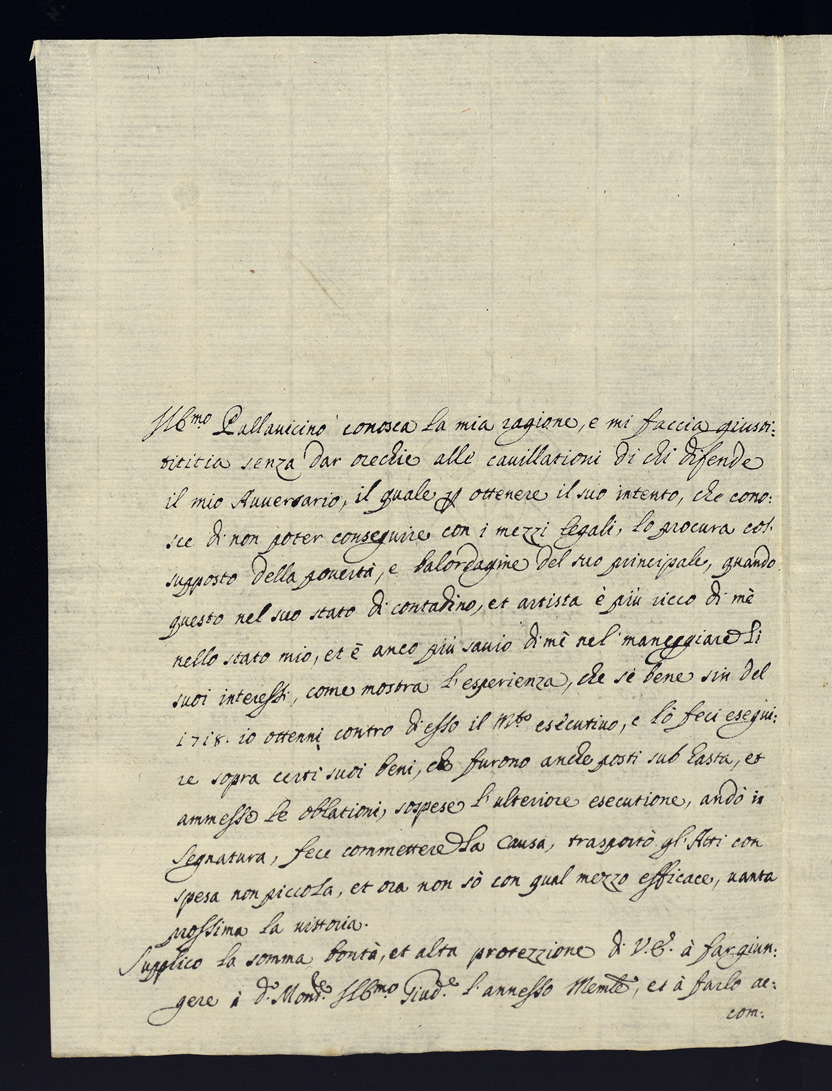 Ill.mo Pallavicino conosca la mia ragione, e mi faccia giusti:
tititia senza dar orechie alle cavillationi di chi difende
il mio Avversario, il quale ꝑ ottenere il suo intento, che cono:
sce di non poter conseguire con i mezzi legali, lo procura col
supposto della povertà, e balordagine del suo principale, quando
questo nel suo stato di contadino, et artista è più ricco di mè
nello stato mio, et è anco più savio di mè nel maneggiare li
suoi interessi, come mostra l'esperienza, che se bene sin del
1718. io ottenni contro di esso il M.to esecutivo, e lo feci esegui:
re sopra certi suoi beni, che furono anche posti sub hasta, et
ammesse le oblationi, sospese l'ulteriore esecutione, andò in
Segnatura, fece commettere la causa, trasportò gl'Atti con
spesa non piccola, et ora non sò con qual mezzo efficace, vanta
prossima la vittoria.
Supplico la somma bontà, et alta protezzione di V.E. à far giun:
gere à d.o Mons.re Ill.mo Giud.e l'annesso Mem.le, et à farlo ac:
com: